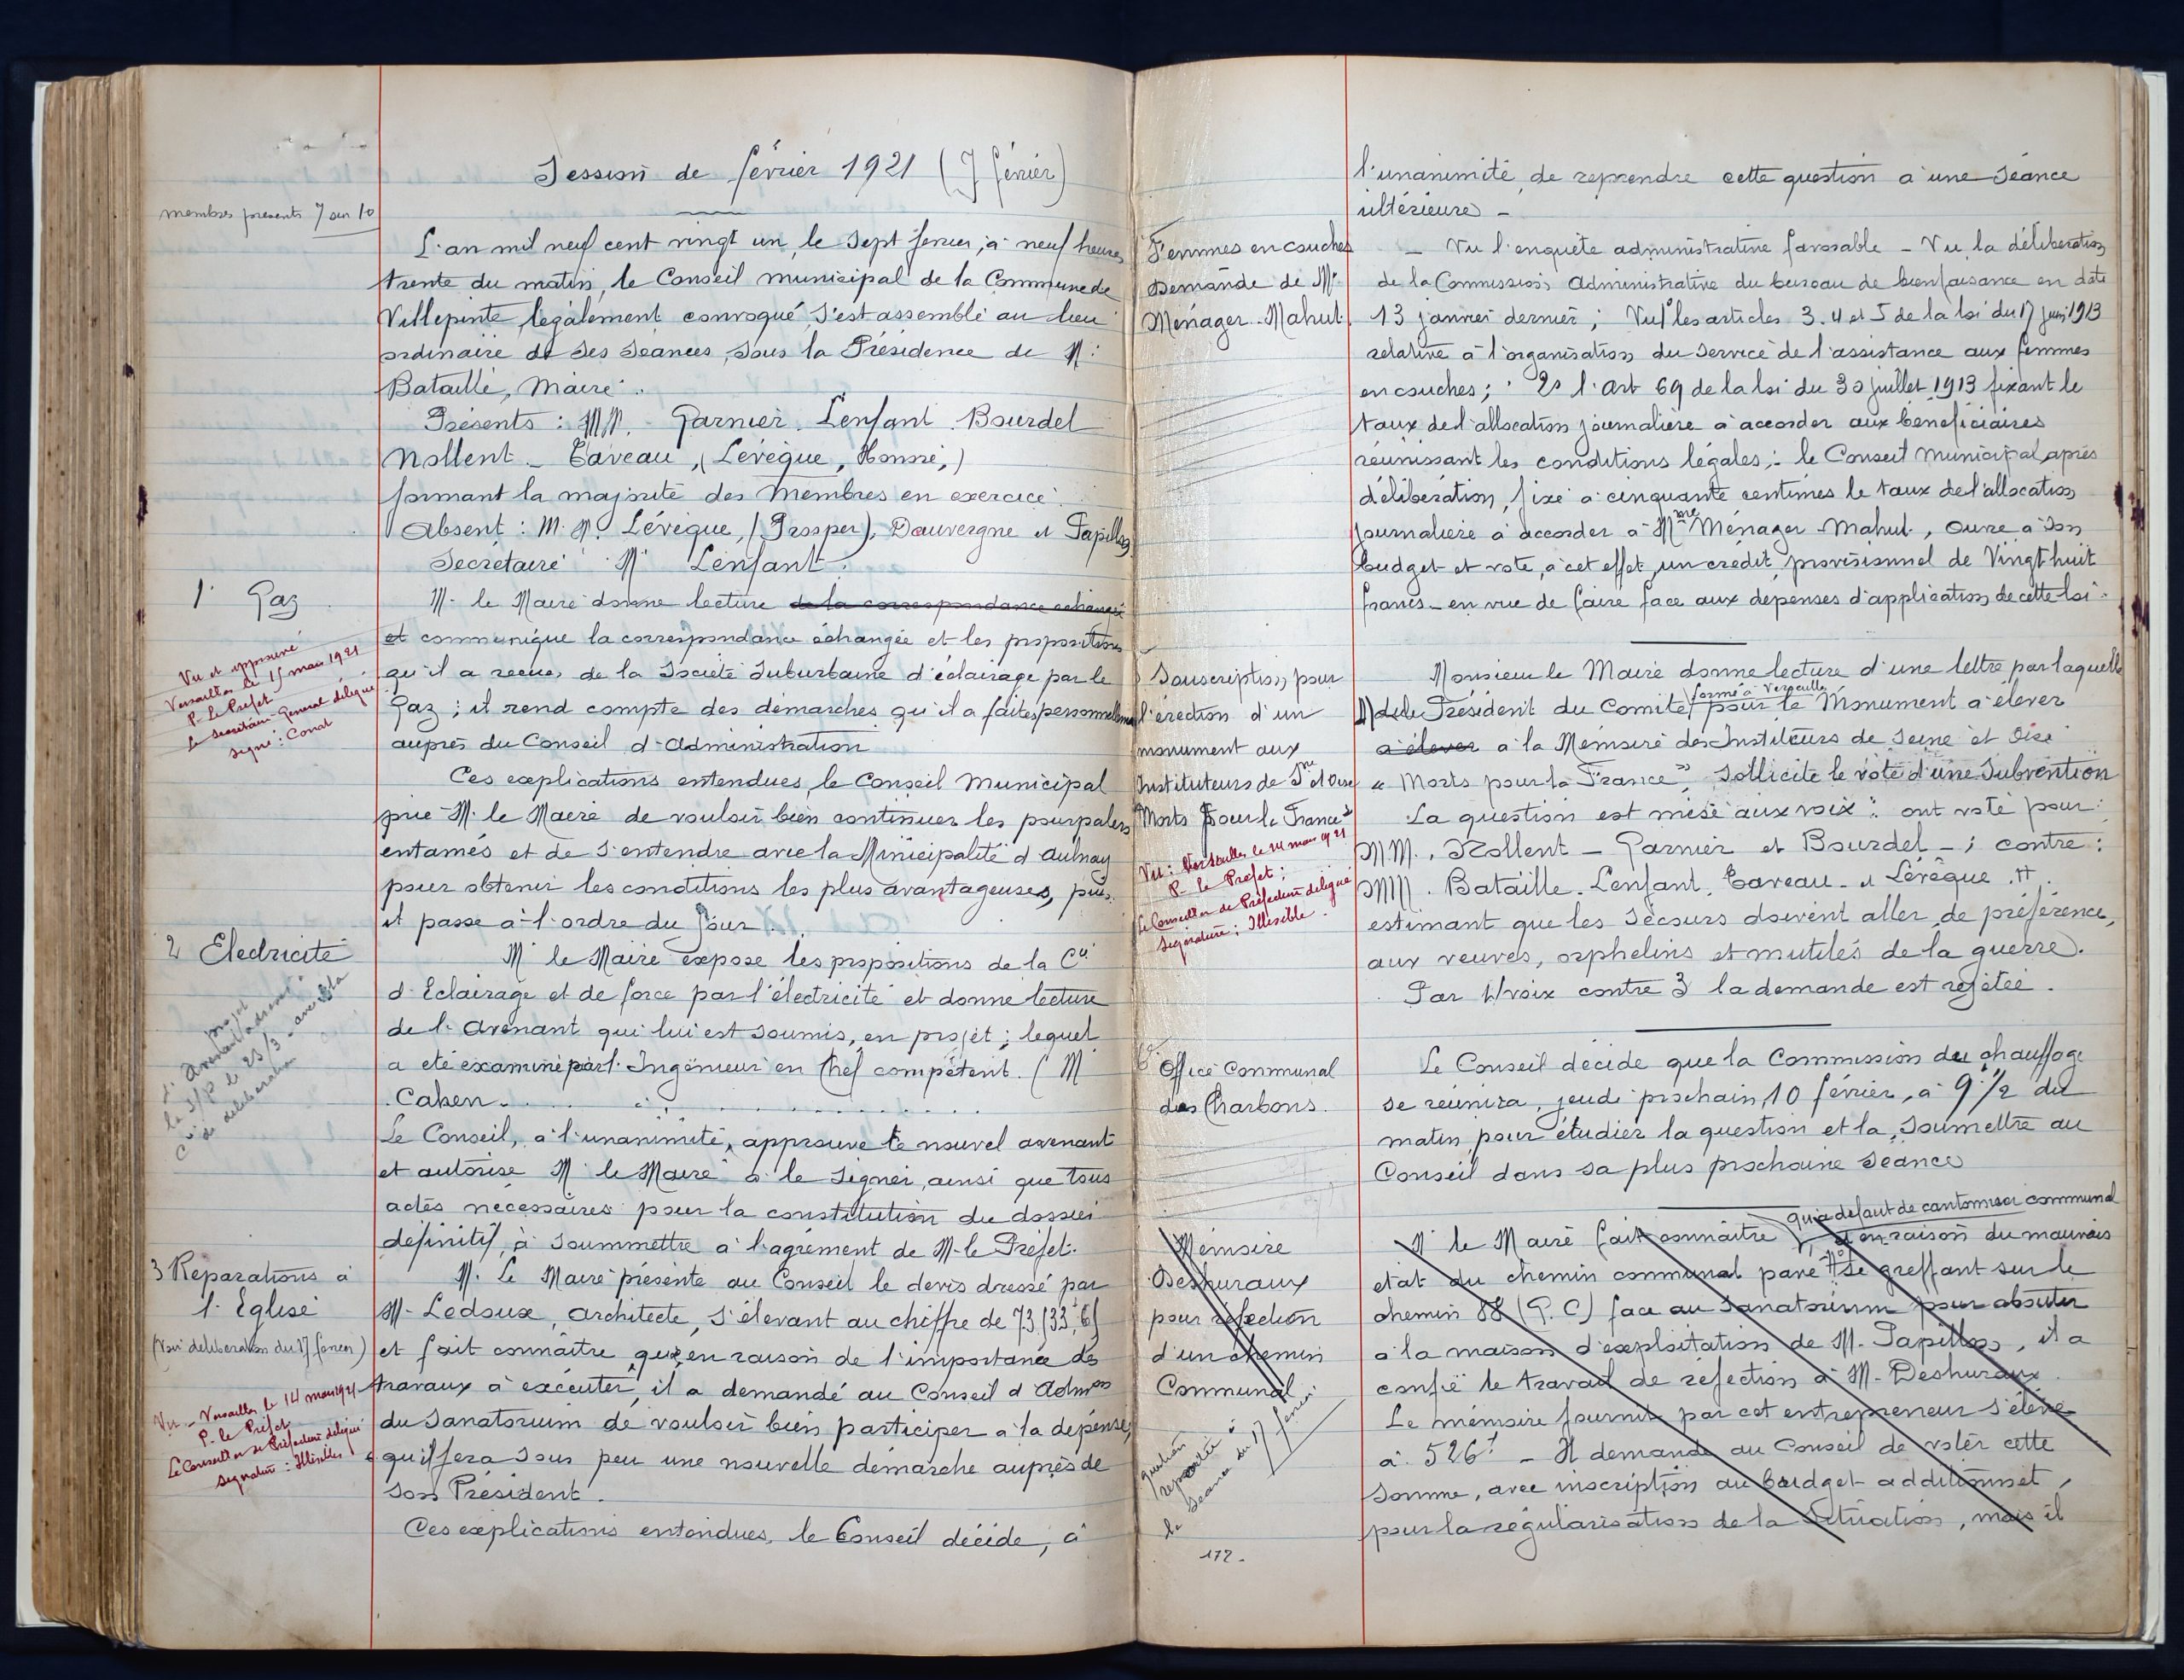 Session de février 1921 (7 février)
membres presents 7 sur 10
L'an mil neuf cent vingt un, le sept fevrier, à neuf heures
trente du matin, le Conseil municipal de la Commune de
Villepinte, légalement convoqué, s'est assemblé au lieu
ordinaire de ses séances, sous la Présidence de M.
Bataille, Maire.
Présents : MM. Garnier. Lenfant. Bourdel
Nollent _ Taveau, (Lévêque, Honoré,)
formant la majorité des membres en exercice.
Absent : M. M. Lévêque, (Prosper), Dauvergne et Papillon
Secrétaire M Lenfant.
1. Gaz
M. le Maire donne lecture de la correspondance échangée
et communique la correspondance échangée et les propositions
qu'il a reçues de la Société Suburbaine d'éclairage par le
Gaz ; il rend compte des démarches qu'il a faites personnellement
auprès du Conseil d'Administration
Vu et approuvé
Versailles le 15 mars 1921
P. Le Préfet
Le Secrétaire Général délégué
signé :
Ces explications entendues, le Conseil Municipal
prie M. le Maire de vouloir bien continuer les pourpalers
entamés et de s'entendre avec la Municipalité d'Aulnay
pour obtenir les conditions les plus avantageuses, puis
il passe à l'ordre du jour.
2 Electricité
M le Maire expose les propositions de la Cie
d'Eclairage et de force par l'électricité et donne lecture
de l'avenant qui lui est soumis, en projet ; lequel
a été examiné par l'Ingénieur en Chef compétent. (M
Cahen
projet
d'avenant
le 23/3 - avec la
de délibération
Le Conseil, à l'unanimité, approuve le nouvel avenant
et autorise M le Maire à le signer, ainsi que tous
actes nécessaires pour la constitution du dossier
définitif, à soummettre à l'agrément de M. le Préfet.
3 Réparations à
l'Eglise
(Voir délibération du 17 février)
M. Le Maire présente au Conseil le devis dressé par
M. Ledoux, architecte, s'élevant au chiffre de
et fait connaître, que, en raison de l'importance des
travaux à exécuter, il a demandé au Conseil d'Admon
du Sanatorium de vouloir bien participer à la dépense,
qu'il fera sous peu une nouvelle démarche auprès de
son Président.
Vu - Versailles le 14 mars 1921
P. le Préfet
Le Conseiller de Préfecture délégué
signature : Illisible
Ces explications entendues, le Conseil décide, à
l'unanimité, de reprendre cette question à une séance
ultérieure _
Femmes en couches
Demande de Me
Ménager-Mahut.
_ Vu l'enquête administrative favorable _ Vu la délibération
de la Commission Administrative du bureau de bienfaisance en date
13 janvier dernier ; Vu 1° les articles 3. 4 et 5 de la loi du 17 juin 1913
relative à l'organisation du service de l'assistance aux femmes
en couches ; 2° l'art 69 de la loi du 30 juillet 1913 fixant le
taux de l'allocation journalière à accorder aux bénéficiaires
réunissant les conditions légales ; le Conseil Municipal, après
délibération, fixe à cinquante centimes le taux de l'allocation
journalière à accorder à Mme Ménager-Mahut., ouvre à son
budget et vote, à cet effet, un crédit, provisionnel de Vingt huit
francs _ en vue de faire face aux dépenses d'application de cette loi.
Souscription pour
l'érection d'un
monument aux
Instituteurs de Sne et Oise
"Morts pour la France"
Monsieur le Maire donne lecture d'une lettre par laquelle
M. le Président du Comité formé à Versailles pour le Monument à élever
à élever à la Mémoire des Instituteurs de Seine et Oise
« Morts pour la France », sollicite le vote d'une subvention
La question est mise aux voix : ont voté pour :
MM., Nollent _ Garnier et Bourdel _ ; contre :
MM. Bataille. Lenfant. Taveau _ et Lévêque. H.
estimant que les secours doivent aller, de préférence,
aux veuves, orphelins et mutilés de la guerre.
Par 4 voix contre 3 la demande est rejetée.
Vu : Versailles le 14 mars 1921
P. le Préfet :
Le Conseiller de Préfecture délégué
Signature : Illisible.
Office Communal
des Charbons.
Le Conseil décide que la Commission du chauffage
se réunira, jeudi prochain, 10 février, à 9h 1/2 du
matin, pour étudier la question et la soumettre au
Conseil dans sa plus prochaine séance
Mémoire
Deshuraux
pour réfection
d'un chemin
Communal
question
reportée à
la séance du 17 février
M le Maire fait connaître qu'à défaut de cantonnier communal
et en raison du mauvais
état du chemin communal pavé N° se greffant sur le
chemin 88 (G. C) face au Sanatorium pour aboutir
à la maison d'exploitation de M. Papillon, il a
confié le travail de réfection à M. Deshuraux.
Le mémoire fournit par cet entrepreneur s'élève
à 526f _ Il demande au Conseil de voter cette
somme, avec inscription au budget additionnel,
pour la régularisation de la situation, mais il
172 -